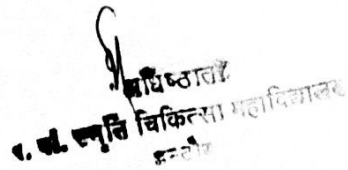 अधिष्ठाता
स्मृति चिकित्सा महाविद्यालय
इन्दौर